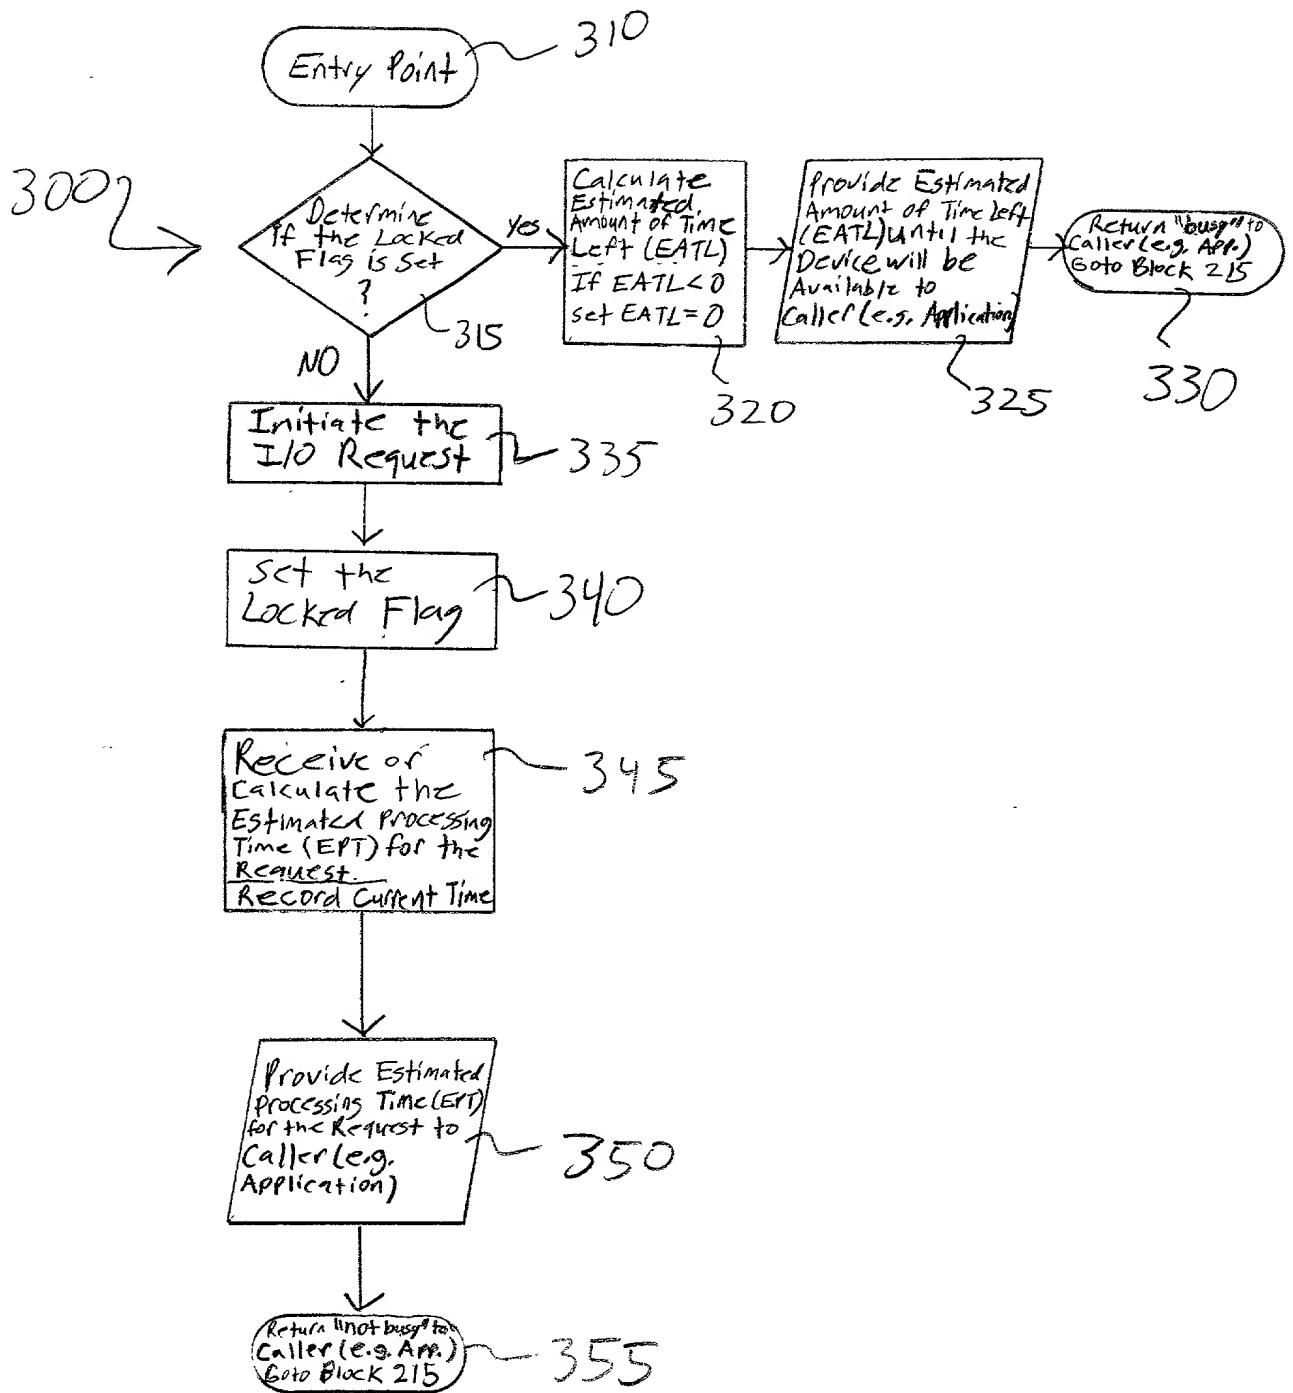 310
Entry Point
300
Determine
if the Locked
Flag is Set
?
315
yes
Calculate
Estimated
Amount of Time
Left (EATL)
If EATL<0
set EATL=0
320
Provide Estimated
Amount of Time Left
(EATL) Until the
Device will be
Available to
Caller (e.g. Application)
325
Return "busy" to
Caller (e.g. App.)
Goto Block 215
330
NO
Initiate the
I/O Request
335
Set the
Locked Flag
340
Receive or
Calculate the
Estimated Processing
Time (EPT) for the
Request.
Record Current Time
345
Provide Estimated
Processing Time (EPT)
for the Request to
Caller (e.g.
Application)
350
Return "not busy" to
Caller (e.g. App.)
Goto Block 215
355